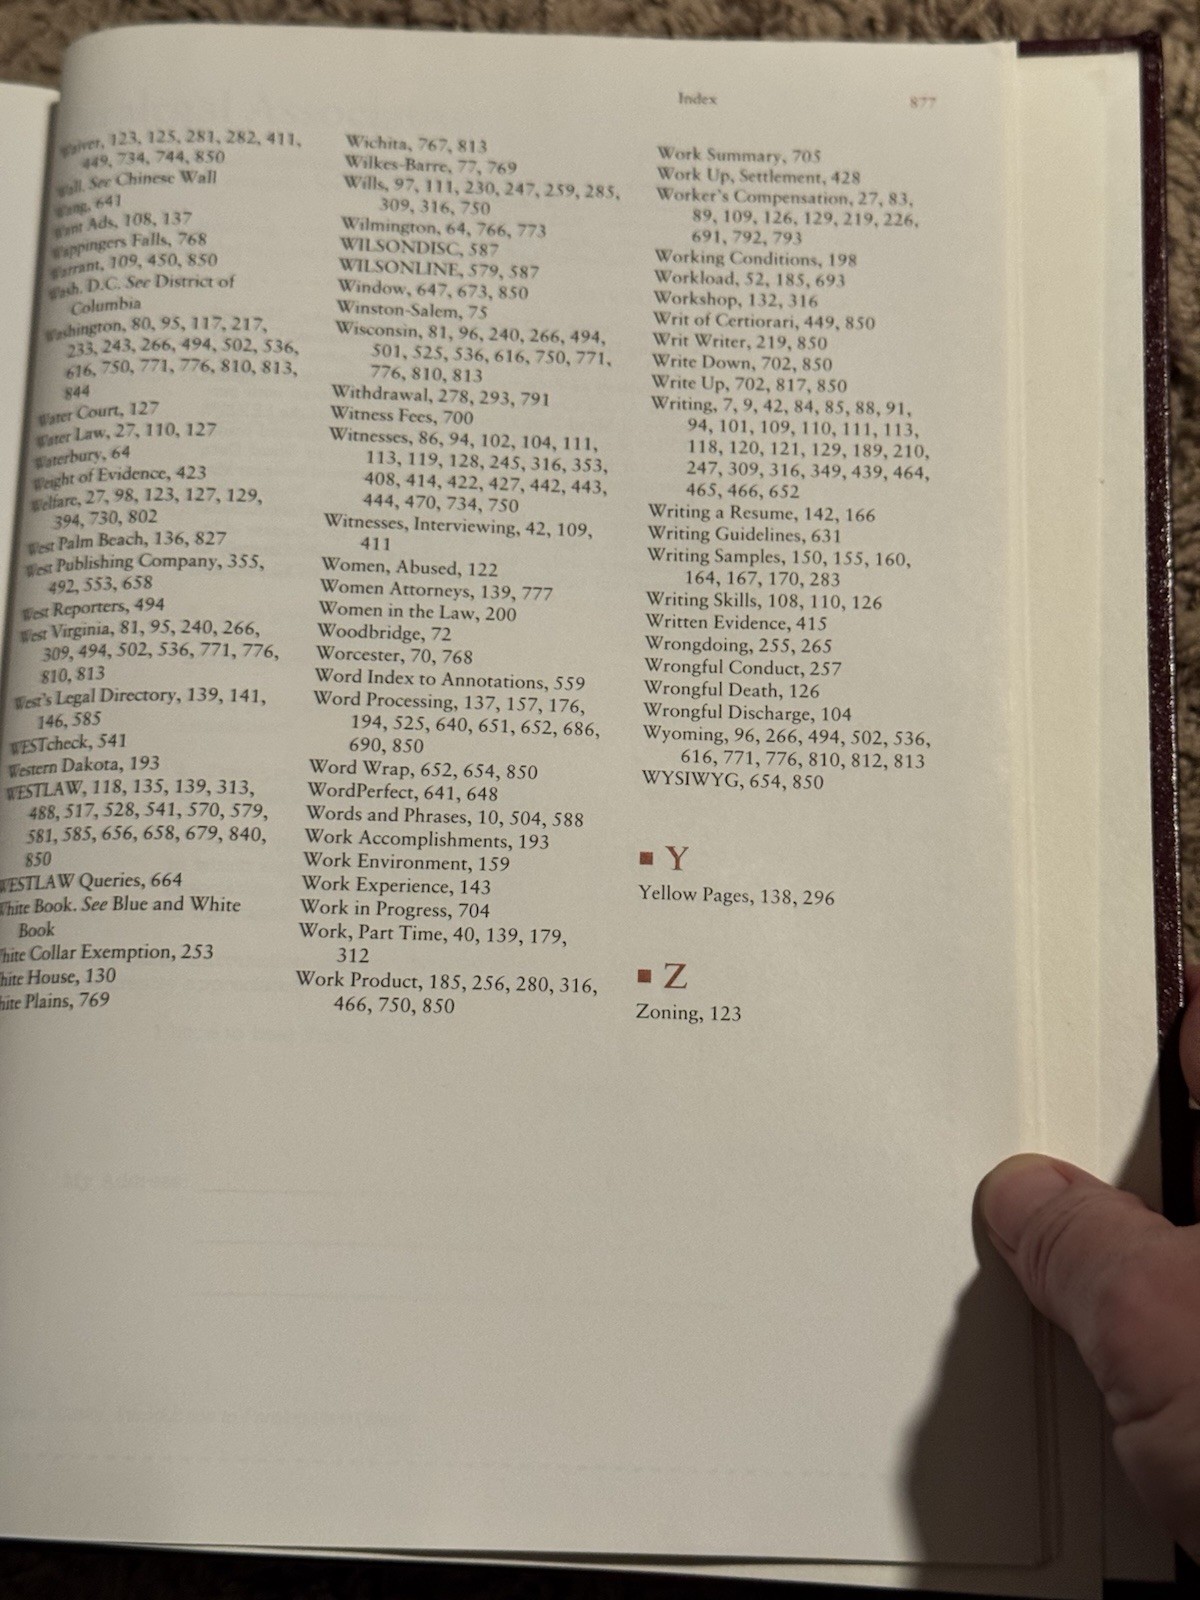 Index 877
Waiver, 123, 125, 281, 282, 411,
449, 734, 744, 850
Wall. See Chinese Wall
Wang, 641
Want Ads, 108, 137
Wappingers Falls, 768
Warrant, 109, 450, 850
Wash. D.C. See District of
Columbia
Washington, 80, 95, 117, 217,
233, 243, 266, 494, 502, 536,
616, 750, 771, 776, 810, 813,
844
Water Court, 127
Water Law, 27, 110, 127
Waterbury, 64
Weight of Evidence, 423
Welfare, 27, 98, 123, 127, 129,
394, 730, 802
West Palm Beach, 136, 827
West Publishing Company, 355,
492, 553, 658
West Reporters, 494
West Virginia, 81, 95, 240, 266,
309, 494, 502, 536, 771, 776,
810, 813
West's Legal Directory, 139, 141,
146, 585
WESTcheck, 541
Western Dakota, 193
WESTLAW, 118, 135, 139, 313,
488, 517, 528, 541, 570, 579,
581, 585, 656, 658, 679, 840,
850
WESTLAW Queries, 664
White Book. See Blue and White
Book
hite Collar Exemption, 253
hite House, 130
hite Plains, 769
Wichita, 767, 813
Wilkes-Barre, 77, 769
Wills, 97, 111, 230, 247, 259, 285,
309, 316, 750
Wilmington, 64, 766, 773
WILSONDISC, 587
WILSONLINE, 579, 587
Window, 647, 673, 850
Winston-Salem, 75
Wisconsin, 81, 96, 240, 266, 494,
501, 525, 536, 616, 750, 771,
776, 810, 813
Withdrawal, 278, 293, 791
Witness Fees, 700
Witnesses, 86, 94, 102, 104, 111,
113, 119, 128, 245, 316, 353,
408, 414, 422, 427, 442, 443,
444, 470, 734, 750
Witnesses, Interviewing, 42, 109,
411
Women, Abused, 122
Women Attorneys, 139, 777
Women in the Law, 200
Woodbridge, 72
Worcester, 70, 768
Word Index to Annotations, 559
Word Processing, 137, 157, 176,
194, 525, 640, 651, 652, 686,
690, 850
Word Wrap, 652, 654, 850
WordPerfect, 641, 648
Words and Phrases, 10, 504, 588
Work Accomplishments, 193
Work Environment, 159
Work Experience, 143
Work in Progress, 704
Work, Part Time, 40, 139, 179,
312
Work Product, 185, 256, 280, 316,
466, 750, 850
Work Summary, 705
Work Up, Settlement, 428
Worker's Compensation, 27, 83,
89, 109, 126, 129, 219, 226,
691, 792, 793
Working Conditions, 198
Workload, 52, 185, 693
Workshop, 132, 316
Writ of Certiorari, 449, 850
Writ Writer, 219, 850
Write Down, 702, 850
Write Up, 702, 817, 850
Writing, 7, 9, 42, 84, 85, 88, 91,
94, 101, 109, 110, 111, 113,
118, 120, 121, 129, 189, 210,
247, 309, 316, 349, 439, 464,
465, 466, 652
Writing a Resume, 142, 166
Writing Guidelines, 631
Writing Samples, 150, 155, 160,
164, 167, 170, 283
Writing Skills, 108, 110, 126
Written Evidence, 415
Wrongdoing, 255, 265
Wrongful Conduct, 257
Wrongful Death, 126
Wrongful Discharge, 104
Wyoming, 96, 266, 494, 502, 536,
616, 771, 776, 810, 812, 813
WYSIWYG, 654, 850
■ Y
Yellow Pages, 138, 296
■ Z
Zoning, 123